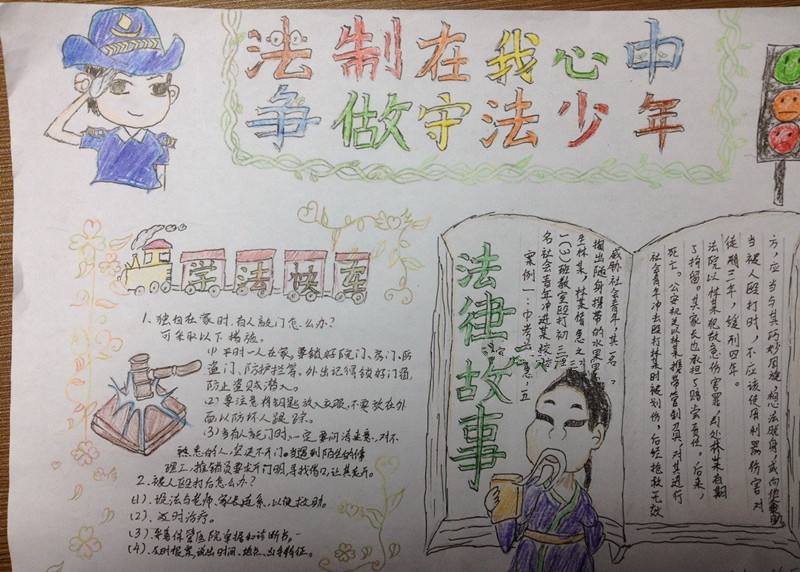 法制在我心中
争做守法少年
学法快车
1、独自在家时,有人敲门怎么办?
可采取以下措施。
(1)平时一人在家,要锁好院门、房门、防
盗门、防护栏等。外出记得锁好门窗,
防止盗贼潜入。
(2)要注意将钥匙放入衣服,不要放在外
面以防坏人跟踪。
(3)当有人敲门时,一定要问清来意,对不
熟悉的人,坚决不开门。当遇到陌生的修
理工,推销员要求开门时,寻找借口,让其离开。
2.被人殴打后怎么办?
(1)、设法与老师、家长连系,以便救助。
(2)、及时治疗。
(3)、妥善保管医院单据和诊断书。
(4)、及时报案,说出时间、地点、出手特征。
法律故事
案例一:中考
名社会青年冲进某校初
一(3)班教室殴打初三
生林某,林某情急之
掏出随身携带的水果
威胁社会青年,其一名
社会青年冲去殴打林某时被划伤,后经抢救无效
死亡。公安机关以林某携带管制刀具,对其进行
了拘留。其家长也承担了赔偿责任。后来,
法院以林某犯故意伤害罪,判处林某有期
徒刑三年,缓刑四年。
当被人殴打时,不应该使用利器伤害对
方,应当与其巧妙周旋,想法脱身,或向